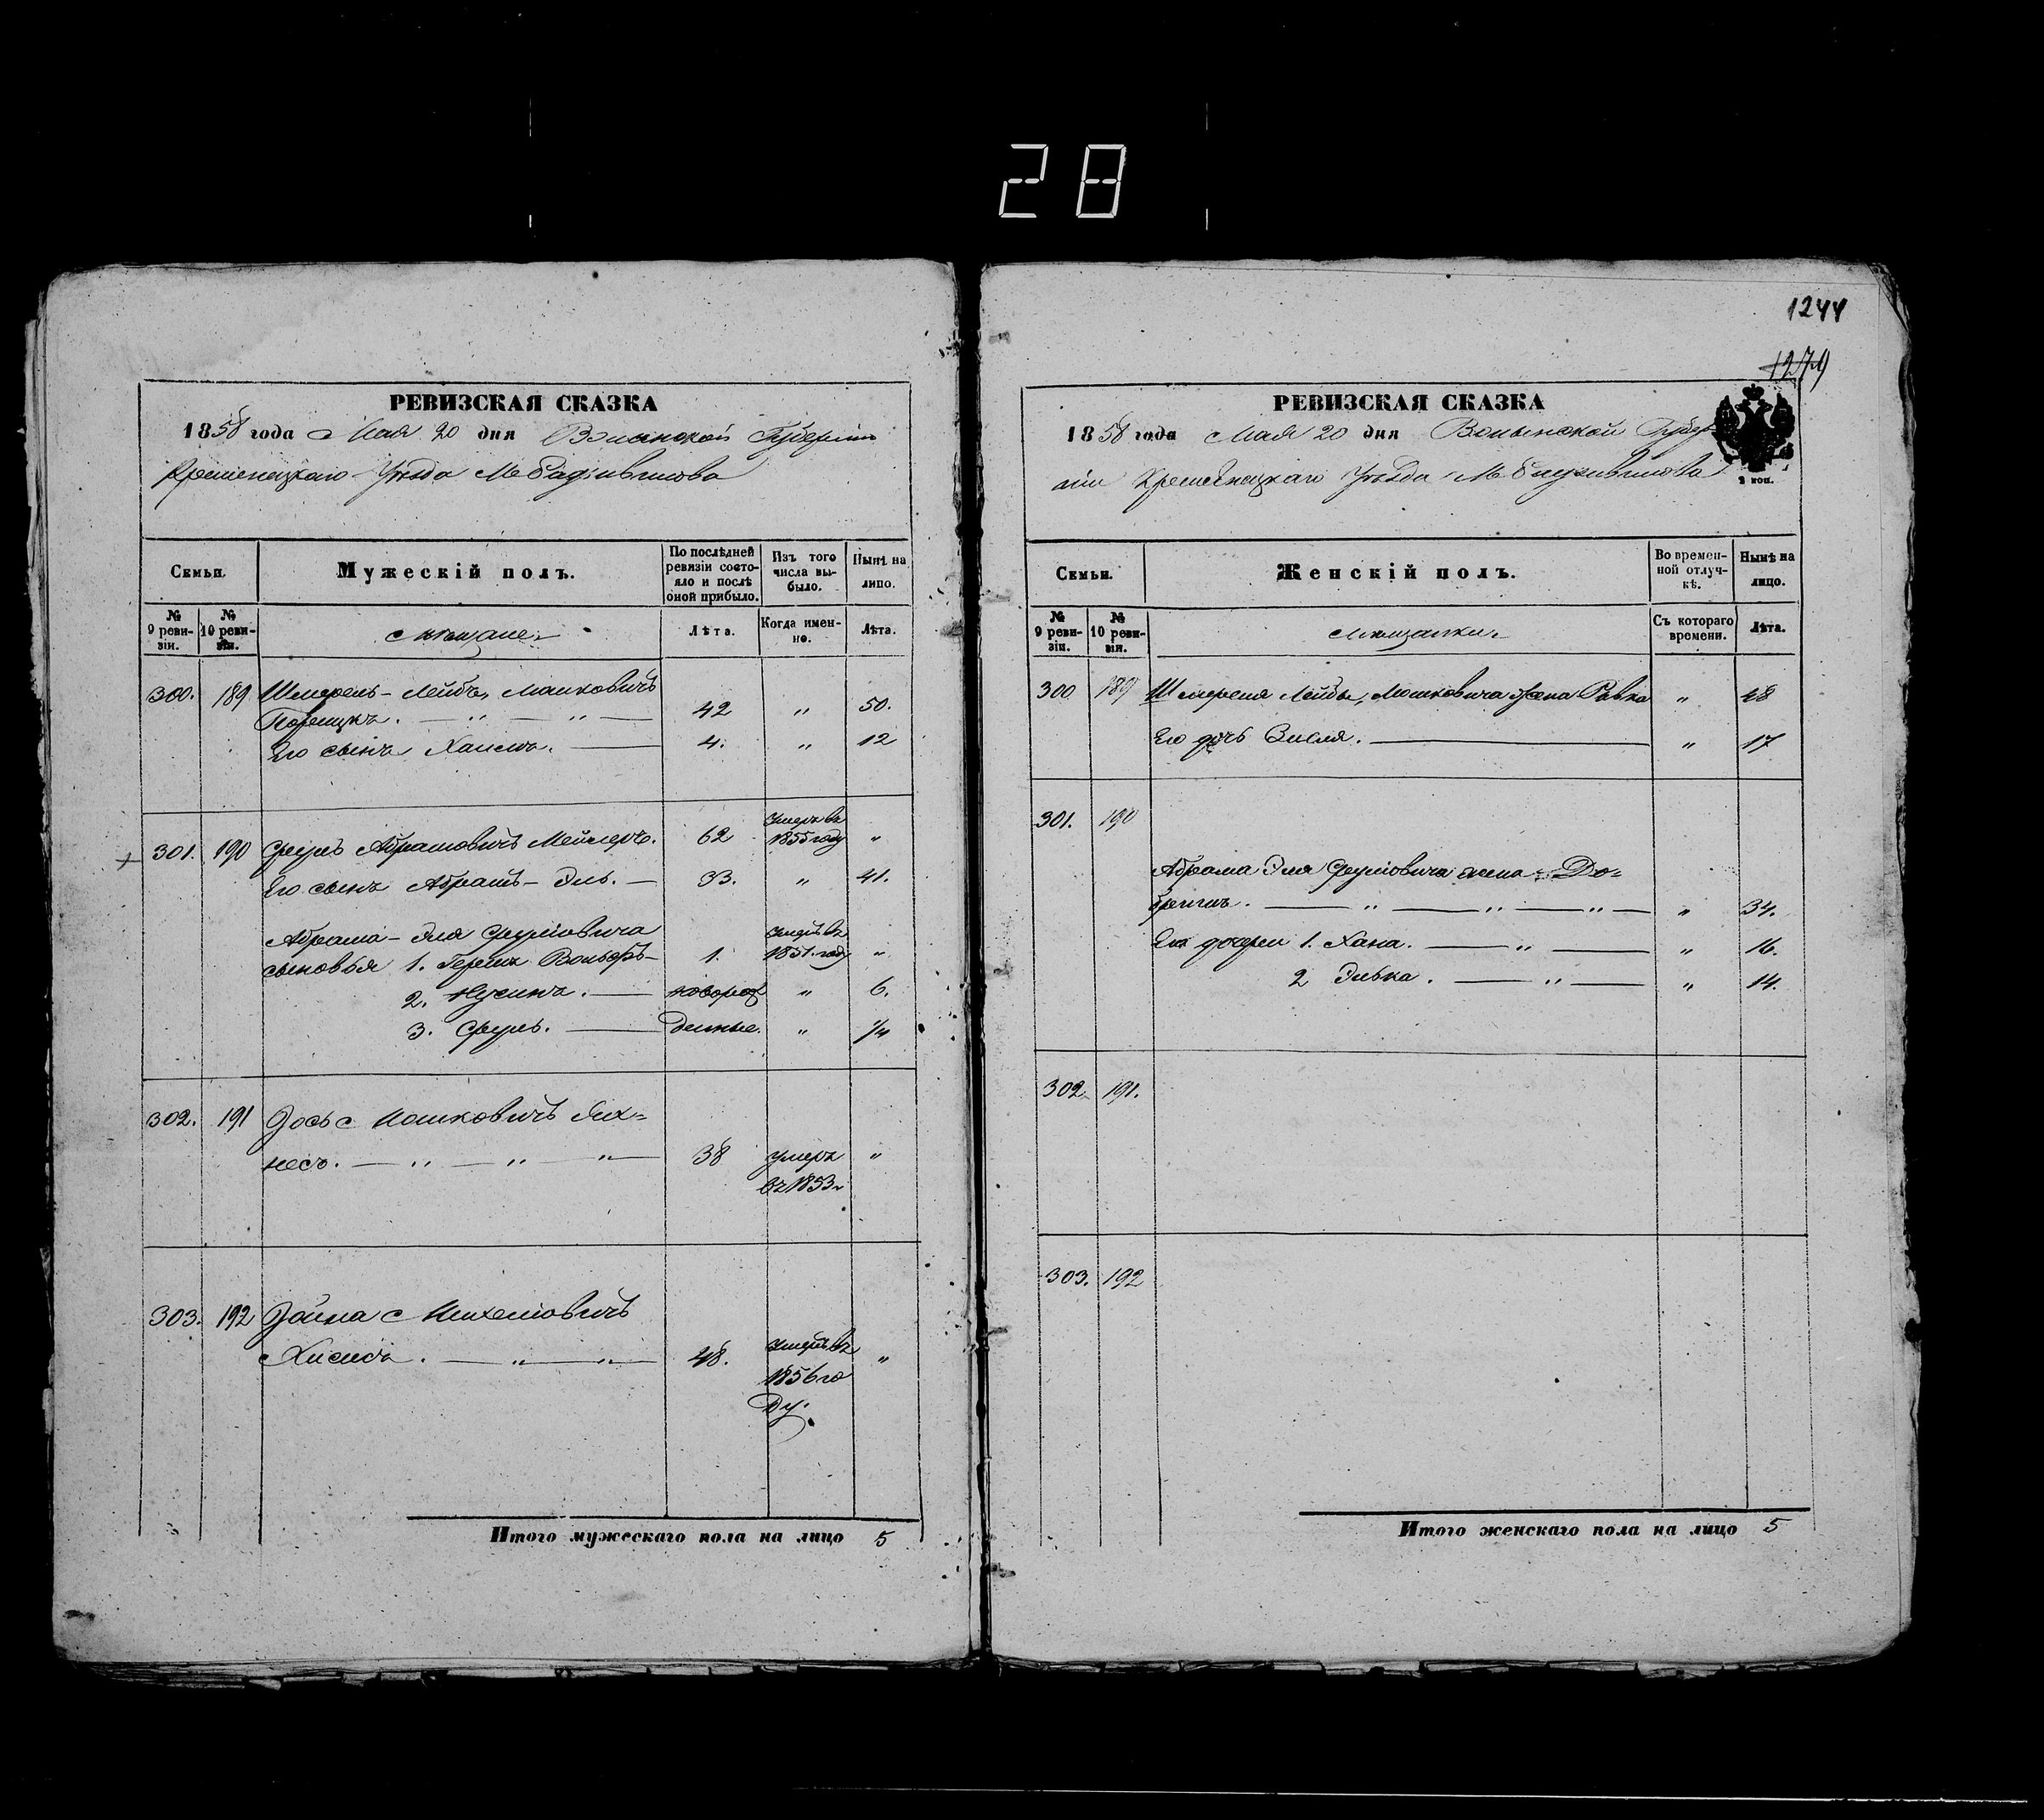 28
1244
1279
РЕВИЗСКАЯ СКАЗКА
1858 года Мая 20 дня Волынской Губерніи
Кременецкаго Уѣзда М Радзивилова
Семьи.
Мужескій полъ.
По послѣдней ревизіи состояло и послѣ оной прибыло.
Изъ того числа выбыло.
Нынѣ на лицо.
№ 9 ревизіи.
№ 10 ревизіи.
Мѣщане.
Лѣта.
Когда именно.
Лѣта.
300. 189 Шмерель-Лейбъ, Мошковичъ
42 " 50.
Его сынъ Хаимъ. 4. " 12
301. 190 Фроимъ Абрамовичъ 62 Умеръ въ 1855 году "
Его сынъ Абрамъ-Эль. 33. " 41.
Абрама-Эля Фроимовича
сыновья 1. Гершъ Вольфъ 1. Умеръ въ 1851 году "
2. Нусинъ. новорож " 6.
3. Фроимъ. денные. " 1/4
302. 191 Іось Мошковичъ Лих=
несъ. 38 умеръ въ 1853 "
303. 192 Ихелювичъ
48. Умеръ въ 1856 го
ду.
Итого мужескаго пола на лицо 5
РЕВИЗСКАЯ СКАЗКА
1858 года Мая 20 дня Волынской Губер
ніи Кременецкаго Уѣзда М Радзивилова
2 коп.
Семьи.
Женскій полъ.
Во временной отлучкѣ.
Нынѣ на лицо.
№ 9 ревизіи.
№ 10 ревизіи.
Мѣщанки.
Съ котораго времени.
Лѣта.
300 189 Шмереля Лейбы, Мошковича жена Ривка " 48
Его дочь Зисля. " 17
301. 190
Абрама Эля Фроимовича жена До=
" 34.
Его дочери 1. Хана. " 16.
2 Элька. " 14.
302. 191.
303. 192
Итого женскаго пола на лицо 5